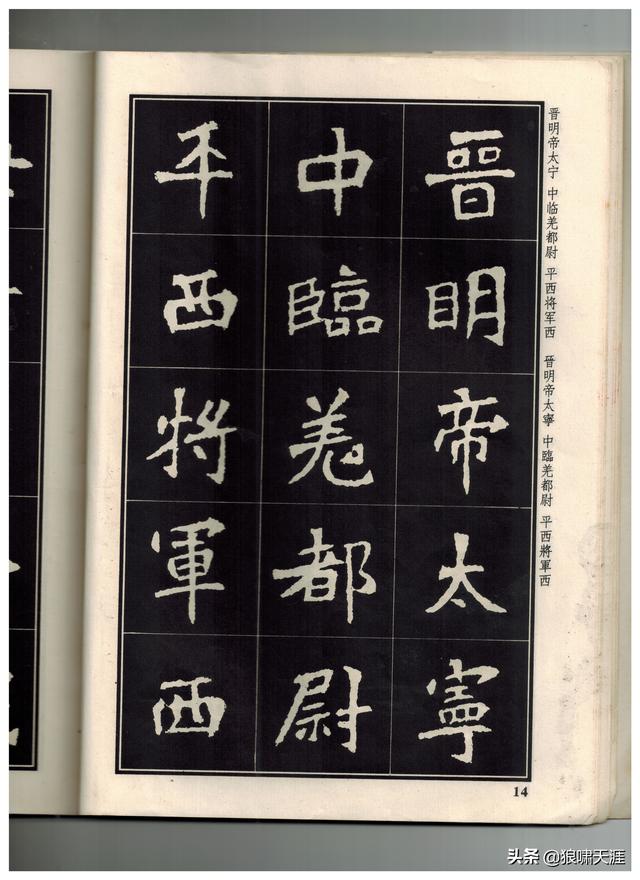 晋明帝太宁 中临羌都尉 平西将军西 晉明帝太寧 中臨羌都尉 平西將軍西
晉明帝太寧
中臨羌都尉
平西將軍西
14
头条 @狼啸天涯